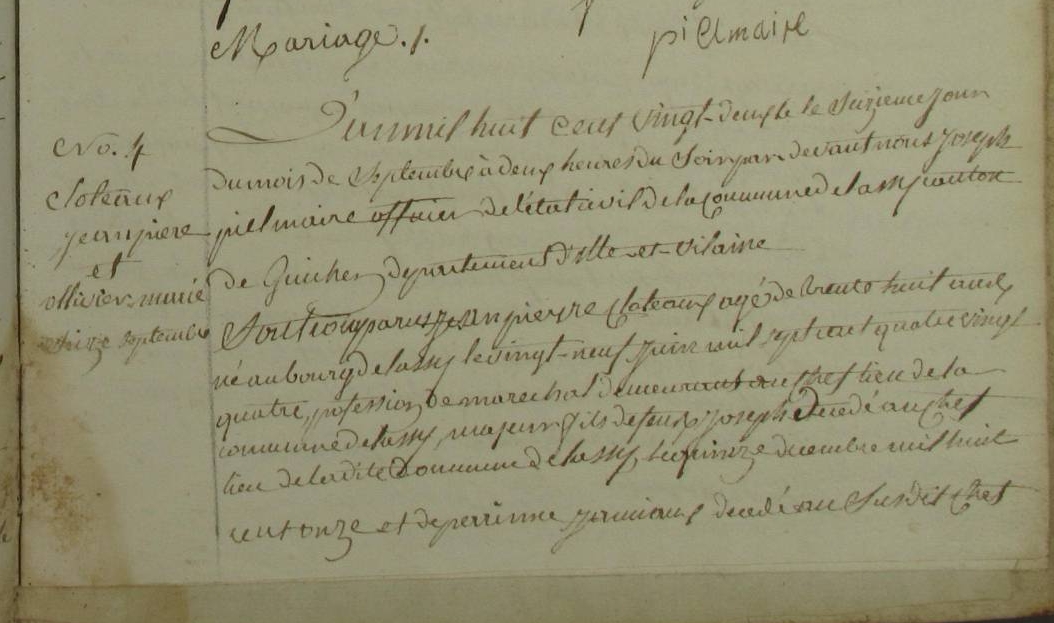 Mariage. /.
piel maire
No. 4
Cloteaux
jean piere
et
ollivier marie
seize septembre
L'an mil huit cent vingt-deux le Seizieme jour
du mois de Septembre à deux heures du Soir par-devant nous Joseph
piel maire officier de l'état civil de la Commune de lassy canton
de Guichen departement d'Ille-et-Vilaine
Sont comparus jean pierre Cloteaux agé de trente huit ans
né au bourg de lassy le vingt-neuf juin mil sept cent quatre vingt
quatre, profession de marechal demeurant au Chef lieu de la
commune de lassy, majeur fils de feux joseph Decedé au Chef
lieu de ladite Commune de lassy, le quinze decembre mil huit
cent onze et de perrinne decedé au Susdit Chef